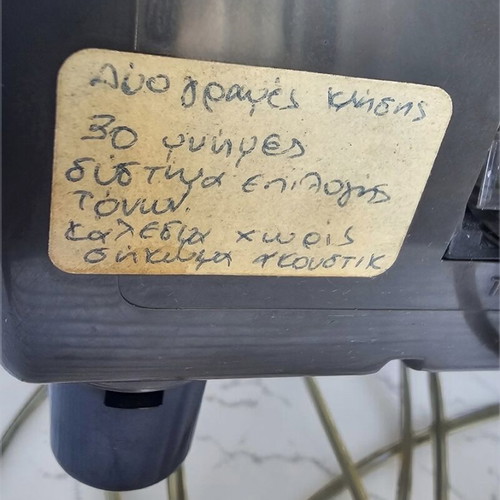 Δύο γραμμές κλήσης
30 μνήμες
σύστημα επιλογής
τόνων.
καλεσμα χωρίς
σήκωμα ακουστικ